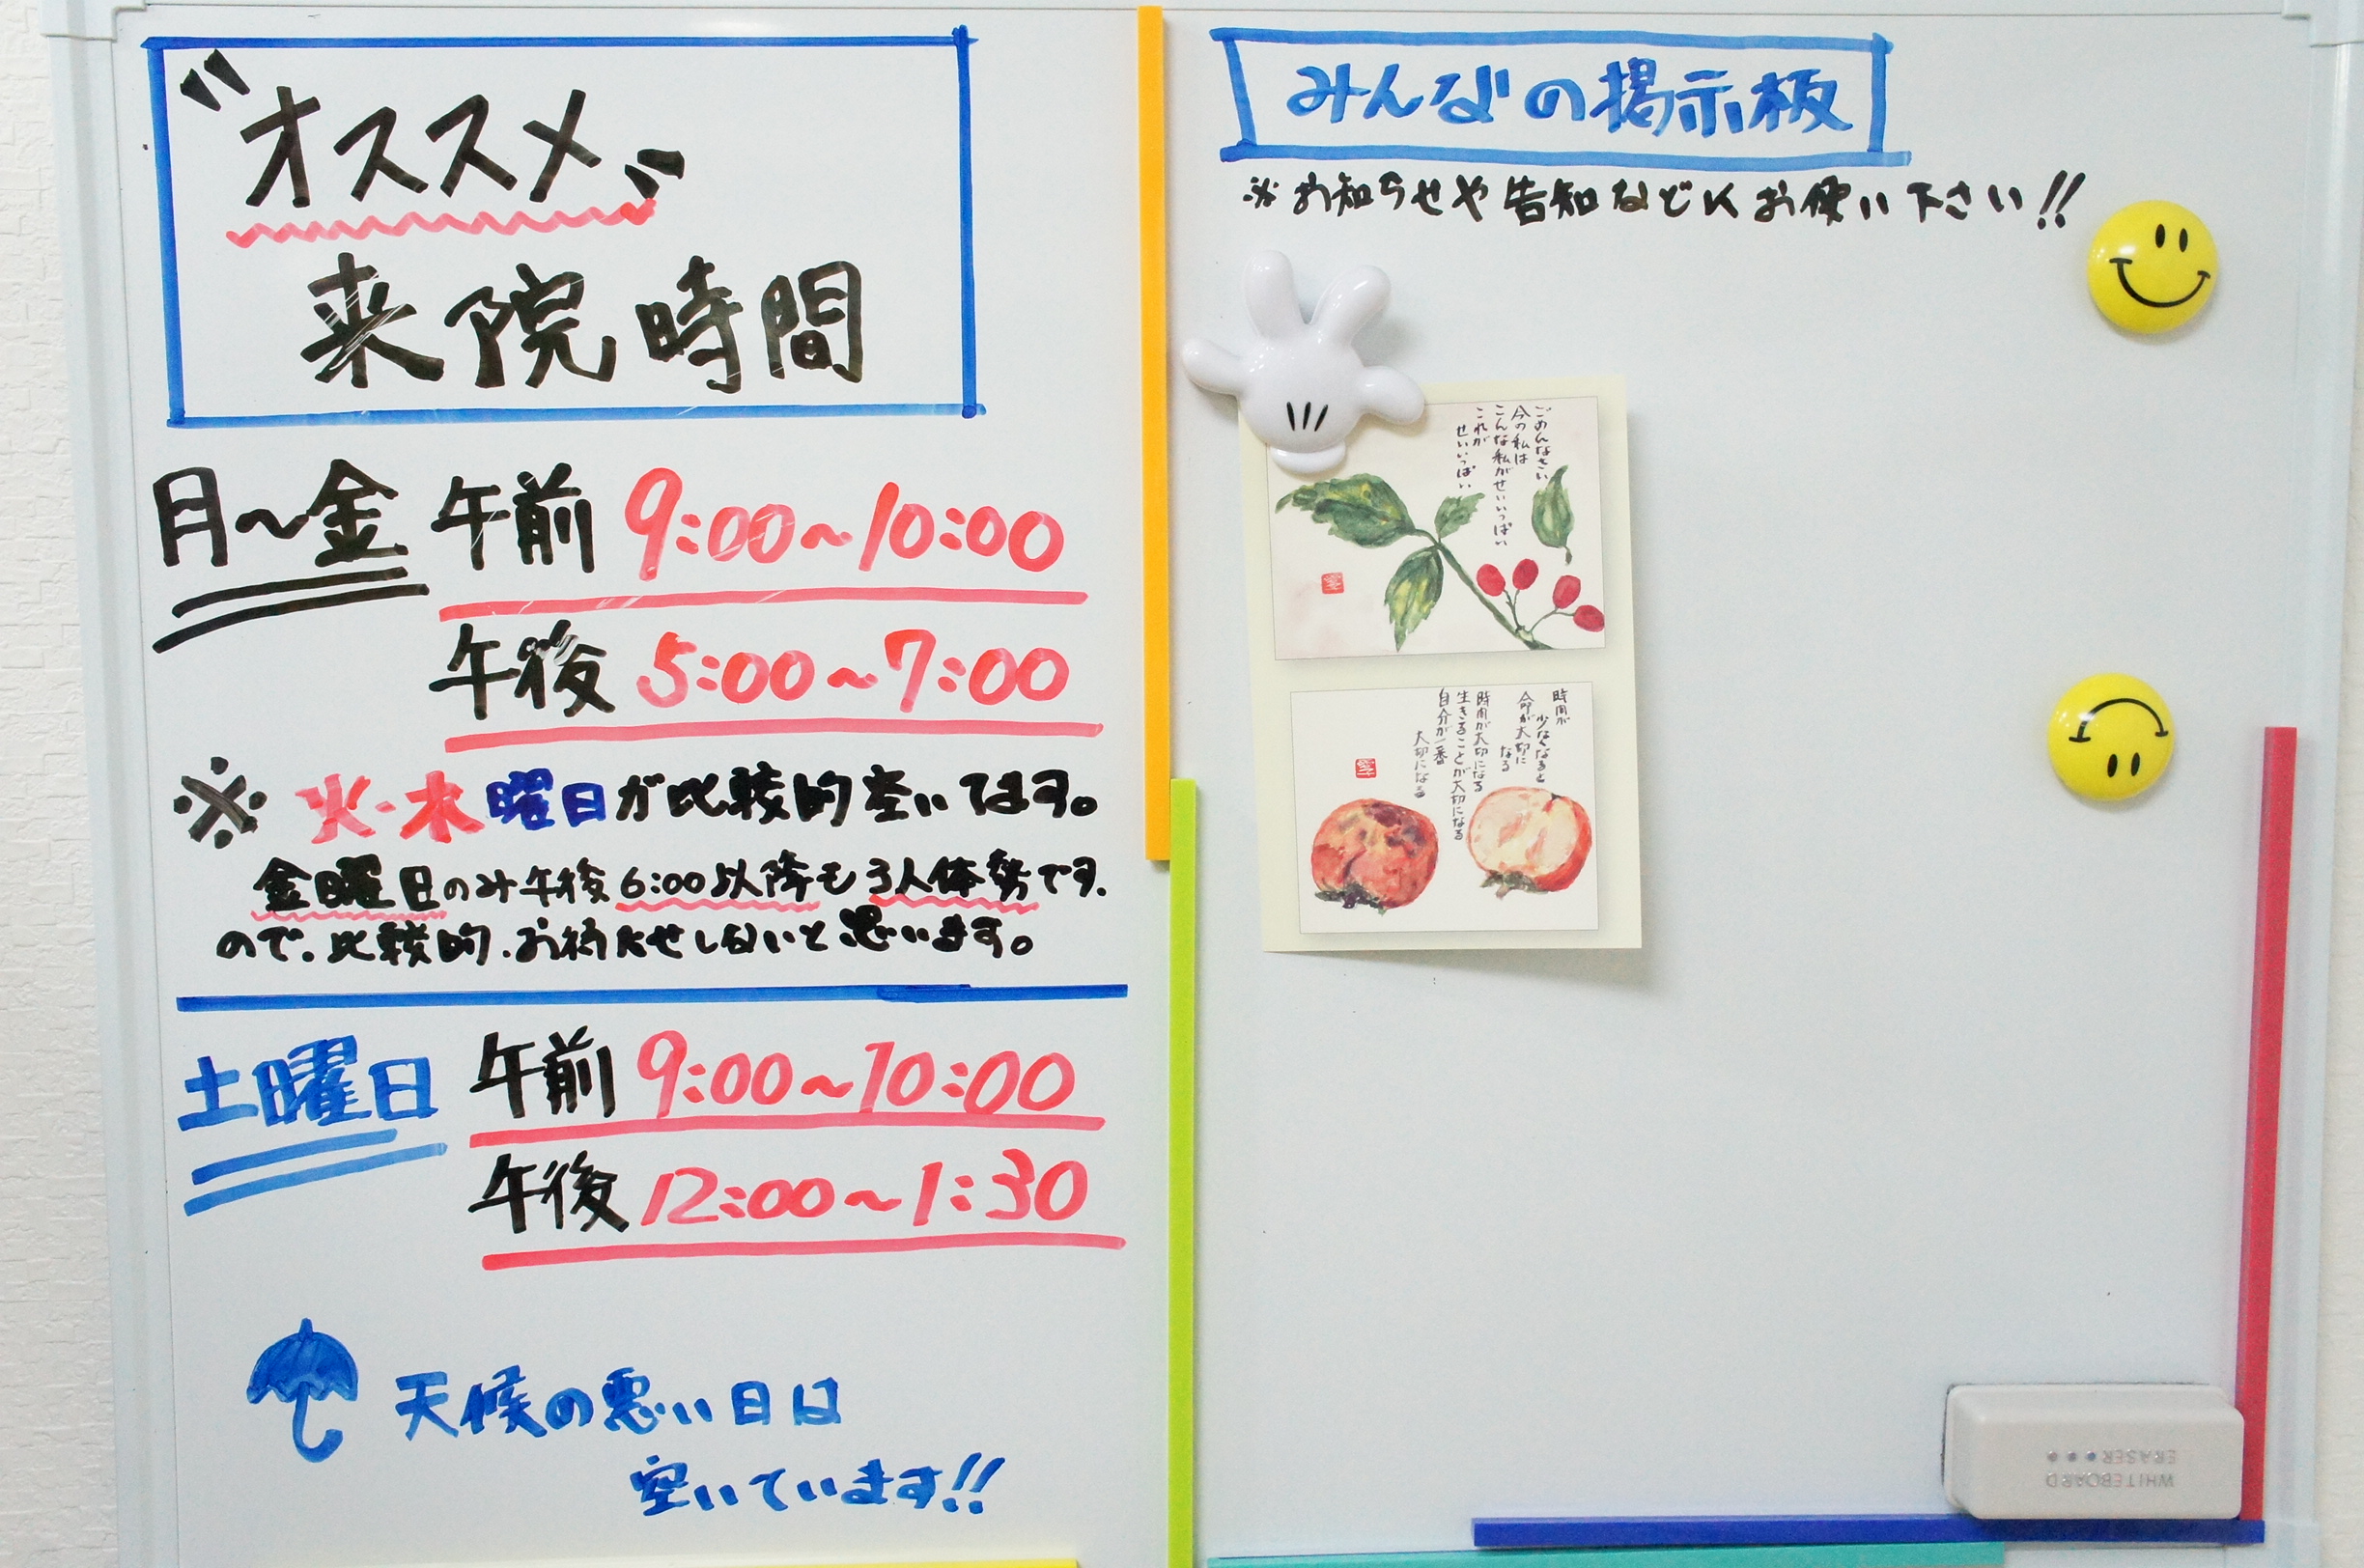 "オススメ"
来院時間
月〜金 午前 9:00〜10:00
午後 5:00〜7:00
※ 火・水曜日が比較的空いてます。
金曜日のみ午後6:00以降も3人体勢です.
ので.比較的.お待たせしないと思います。
土曜日 午前 9:00〜10:00
午後 12:00〜1:30
天候の悪い日は
空いています!!
みんなの掲示板
※お知らせや告知などにお使い下さい!!
ごめんなさい
今の私は
こんな私がせいいっぱい
これが
せいいっぱい
時間が
少なくなると
命が大切に
なる
時間が大切になる
生きることが大切になる
自分が一番
大切になる
WHITEBOARD
ERASER